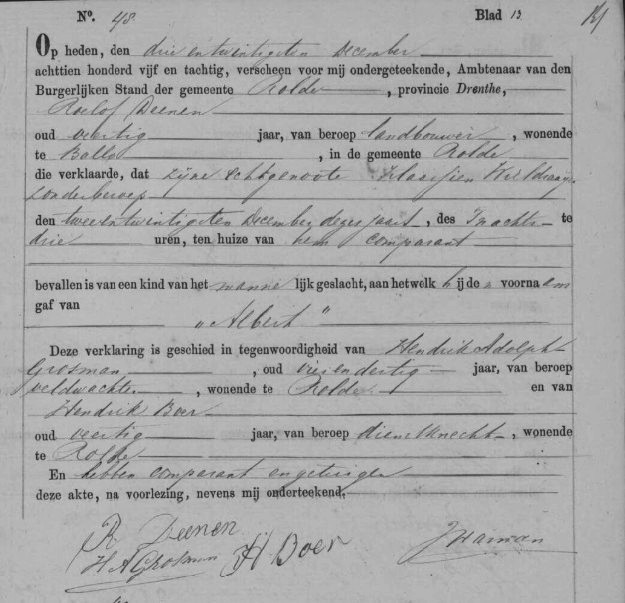 No. 48. Blad 13
Op heden, den drie en twintigsten December
achttien honderd vijf en tachtig, verscheen voor mij ondergeteekende, Ambtenaar van den
Burgerlijken Stand der gemeente Rolde, provincie Drenthe,
Roelof Deenen
oud veertig jaar, van beroep landbouwer, wonende
te Ballo, in de gemeente Rolde
die verklaarde, dat zijne echtgenoote
zonder beroep
den twee en twintigsten December dezes jaars, des nachts te
drie uren, ten huize van hem comparant
bevallen is van een kind van het mannelijk geslacht, aan hetwelk hij de voornaam
gaf van
"Albert"
Deze verklaring is geschied in tegenwoordigheid van Hendrik Adolph
Grosman, oud vierendertig jaar, van beroep
veldwachter, wonende te Rolde en van
Hendrik Boer
oud veertig jaar, van beroep dienstknecht, wonende
te Rolde
En hebben comparant en getuigen
deze akte, na voorlezing, nevens mij onderteekend.
R Deenen
H A Grosman H. Boer